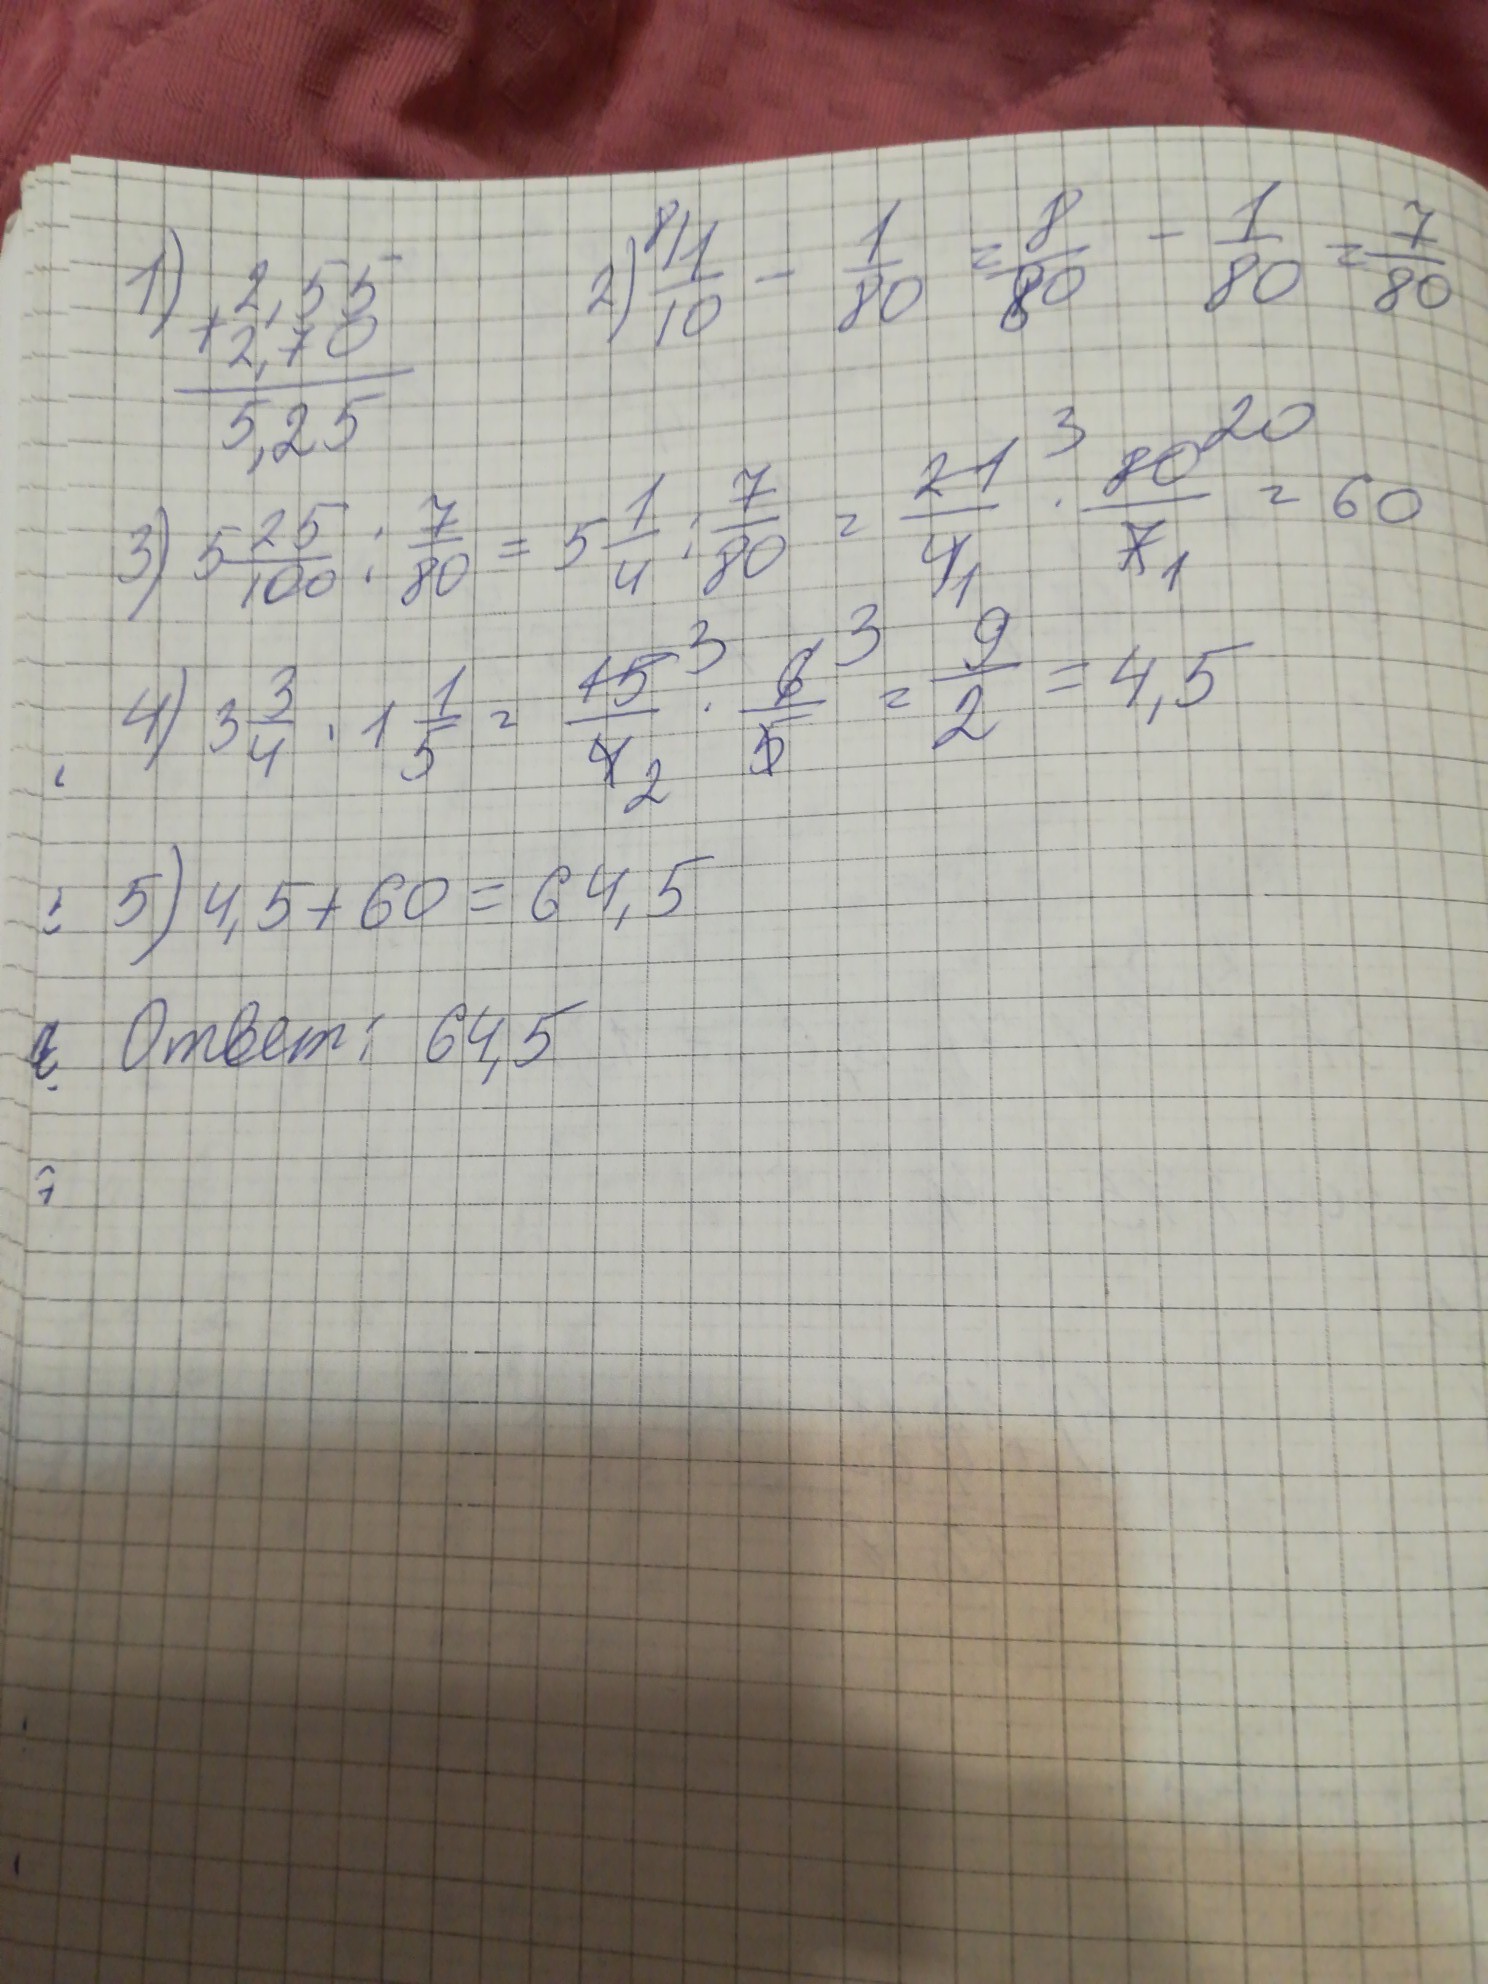 1) + 2,55
2,70
5,25
2) 8/ 1/10 - 1/80 = 8/80 - 1/80 = 7/80
3) 5 25/100 : 7/80 = 5 1/4 : 7/80 = 21 3/4 1 · 80 20/7 1 = 60
4) 3 3/4 · 1 1/5 = 15 3/4 2 · 6 3/5 = 9/2 = 4,5
5) 4,5 + 60 = 64,5
Ответ: 64,5